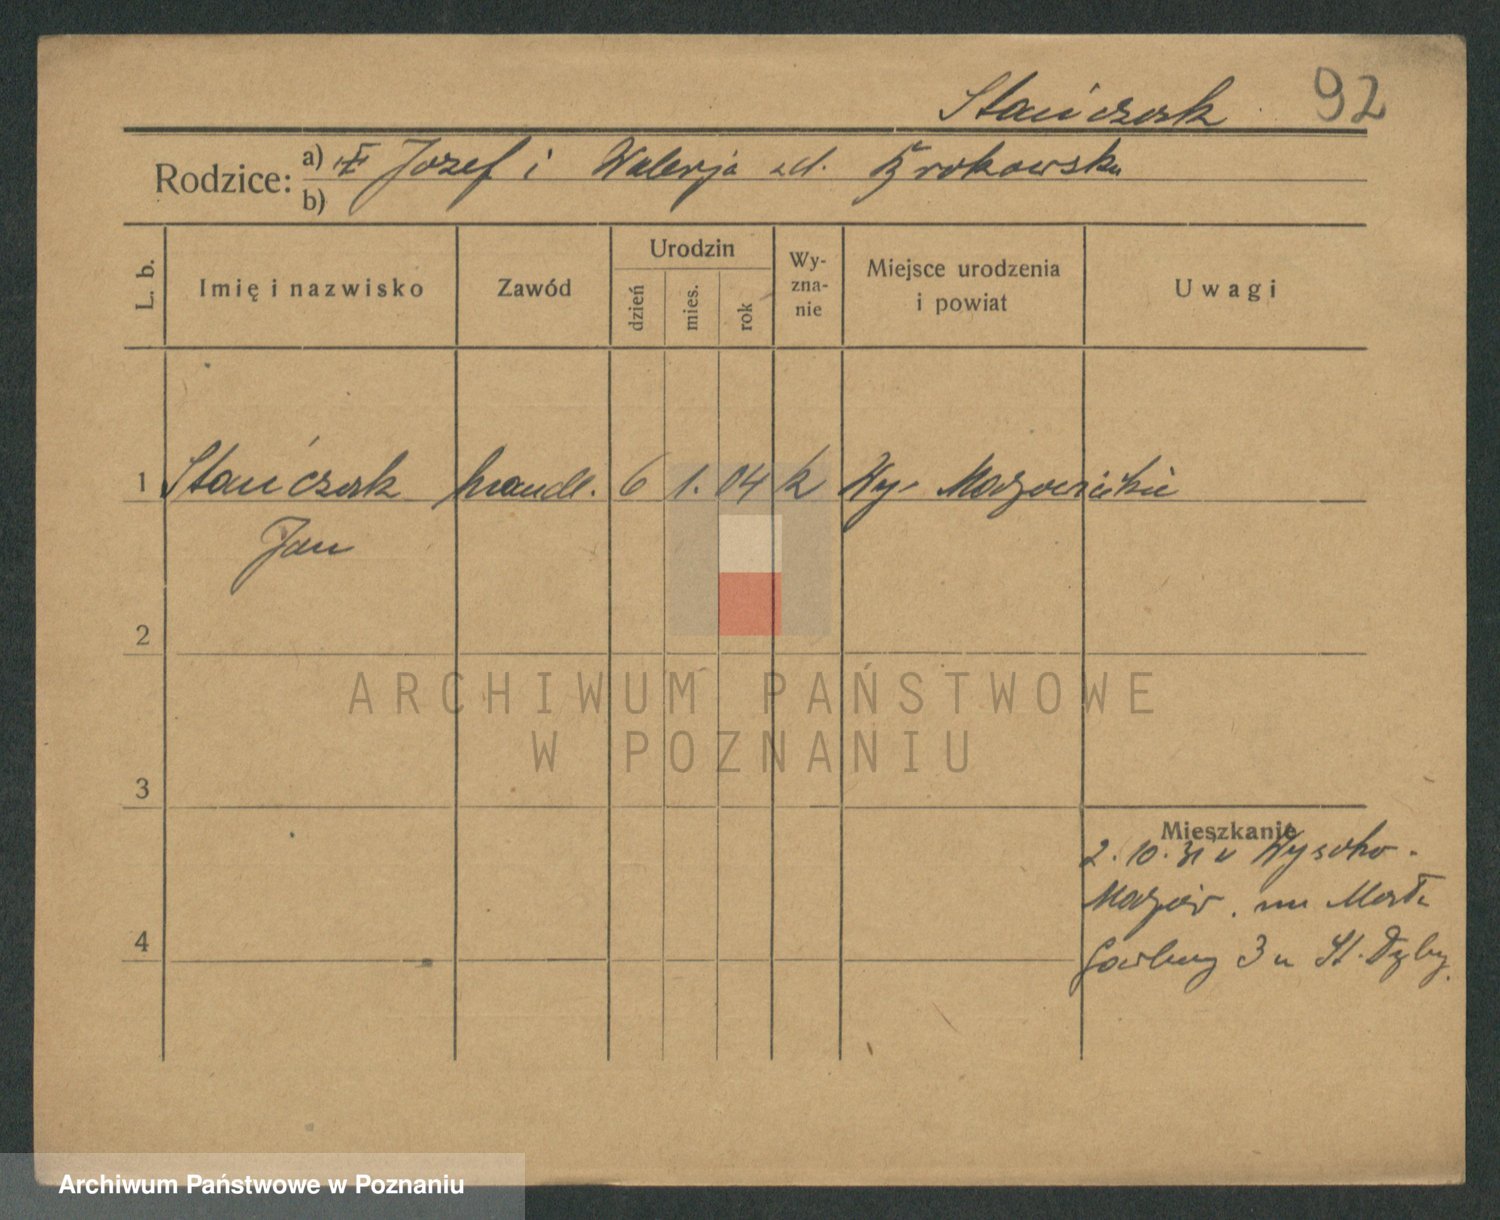 Stańczak 92
Rodzice: a) Józef i Walerja zd. Krokowska
b)
L. b. Imię i nazwisko Zawód Urodzin dzień mies. rok Wy-zna-nie Miejsce urodzenia i powiat Uwagi
1 Stańczak handl. 6 1. 04 k Wys. Mazowieckie
Jan
2
3
Mieszkanie
2. 10. 31 z Wysoko-
Mazow. na
4
3 u St.
ARCHIWUM PAŃSTWOWE
W POZNANIU
Archiwum Państwowe w Poznaniu